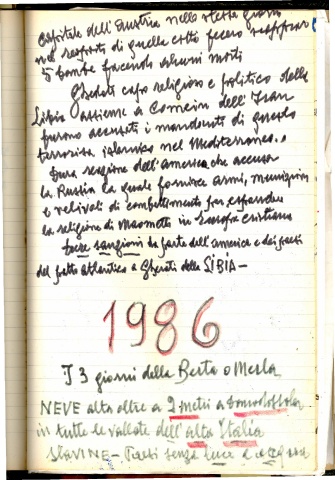 capitale dell'Austria nello stesso giorno
nel aeroporto di quella città fecero scoppiare
5 bombe facendo alcuni morti
Ghedafi capo religioso e politico della
Libia assieme a Comeini dell'Iran
furono accusati i mandanti di questo
terrorista islamico nel Mediterraneo.
Dura reazione dell'america che accusa
la Russia la quale fornisce armi, munizioni
e velivoli da combattimento per espandere
la religione di Maometto in Europa cristiana
forse sangioni da parte dell'america e dei paesi
del patto atlantico a Ghedafi della LIBIA —
1986
I 3 giorni della Berta o Merla
NEVE alta oltre a 2 metri a Domodossola
in tutte le vallate dell'alta Italia
SLAVINE — Paesi senza luce e acqua